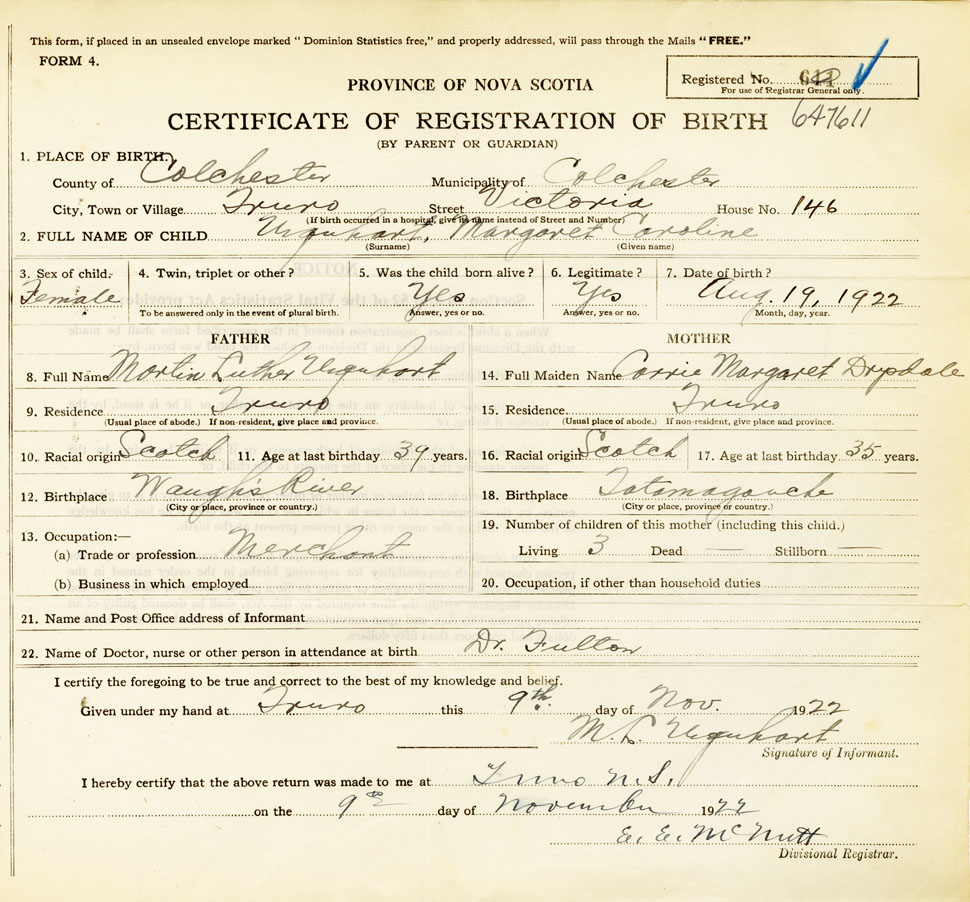 This form, if placed in an unsealed envelope marked “ Dominion Statistics free,” and properly addressed, will pass through the Mails “ FREE.”
FORM 4.
Registered No.
For use of Registrar General only.
PROVINCE OF NOVA SCOTIA
CERTIFICATE OF REGISTRATION OF BIRTH 647611
(BY PARENT OR GUARDIAN)
1. PLACE OF BIRTH.
County of Colchester Municipality of Colchester
City, Town or Village Truro Street Victoria House No. 146
(If birth occurred in a hospital, give its name instead of Street and Number)
2. FULL NAME OF CHILD Urquhart, Margaret Caroline
(Surname) (Given name)
3. Sex of child. 4. Twin, triplet or other? 5. Was the child born alive? 6. Legitimate? 7. Date of birth?
Female Yes Yes Aug. 19, 1922
To be answered only in the event of plural birth. Answer, yes or no. Answer, yes or no. Month, day, year.
FATHER MOTHER
8. Full Name Martin Luther Urquhart 14. Full Maiden Name Carrie Margaret Drysdale
9. Residence Truro 15. Residence. Truro
(Usual place of abode.) If non-resident, give place and province. (Usual place of abode.) If non-resident, give place and province.
10. Racial origin Scotch 11. Age at last birthday 39 years. 16. Racial origin Scotch 17. Age at last birthday 35 years.
12. Birthplace Waugh's River 18. Birthplace Tatamagouche
(City or place, province or country.) (City or place, province or country.)
13. Occupation:— 19. Number of children of this mother (including this child.)
(a) Trade or profession Merchant Living 3 Dead — Stillborn —
(b) Business in which employed 20. Occupation, if other than household duties
21. Name and Post Office address of Informant
22. Name of Doctor, nurse or other person in attendance at birth Dr. Fulton
I certify the foregoing to be true and correct to the best of my knowledge and belief.
Given under my hand at Truro this 9th. day of Nov. 1922
M. L. Urquhart
Signature of Informant.
I hereby certify that the above return was made to me at Truro N.S.
on the 9th day of November 1922
E. E. McNutt
Divisional Registrar.